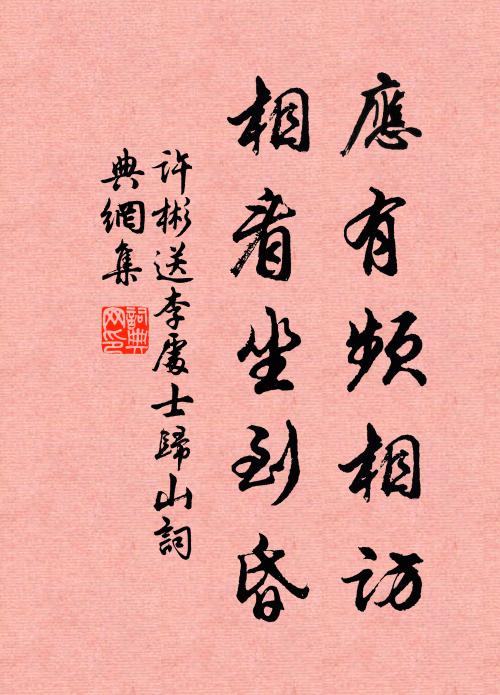 應有頻相訪
相看坐到昏
許彬送李處士歸山詞
典網集
詞典
网印